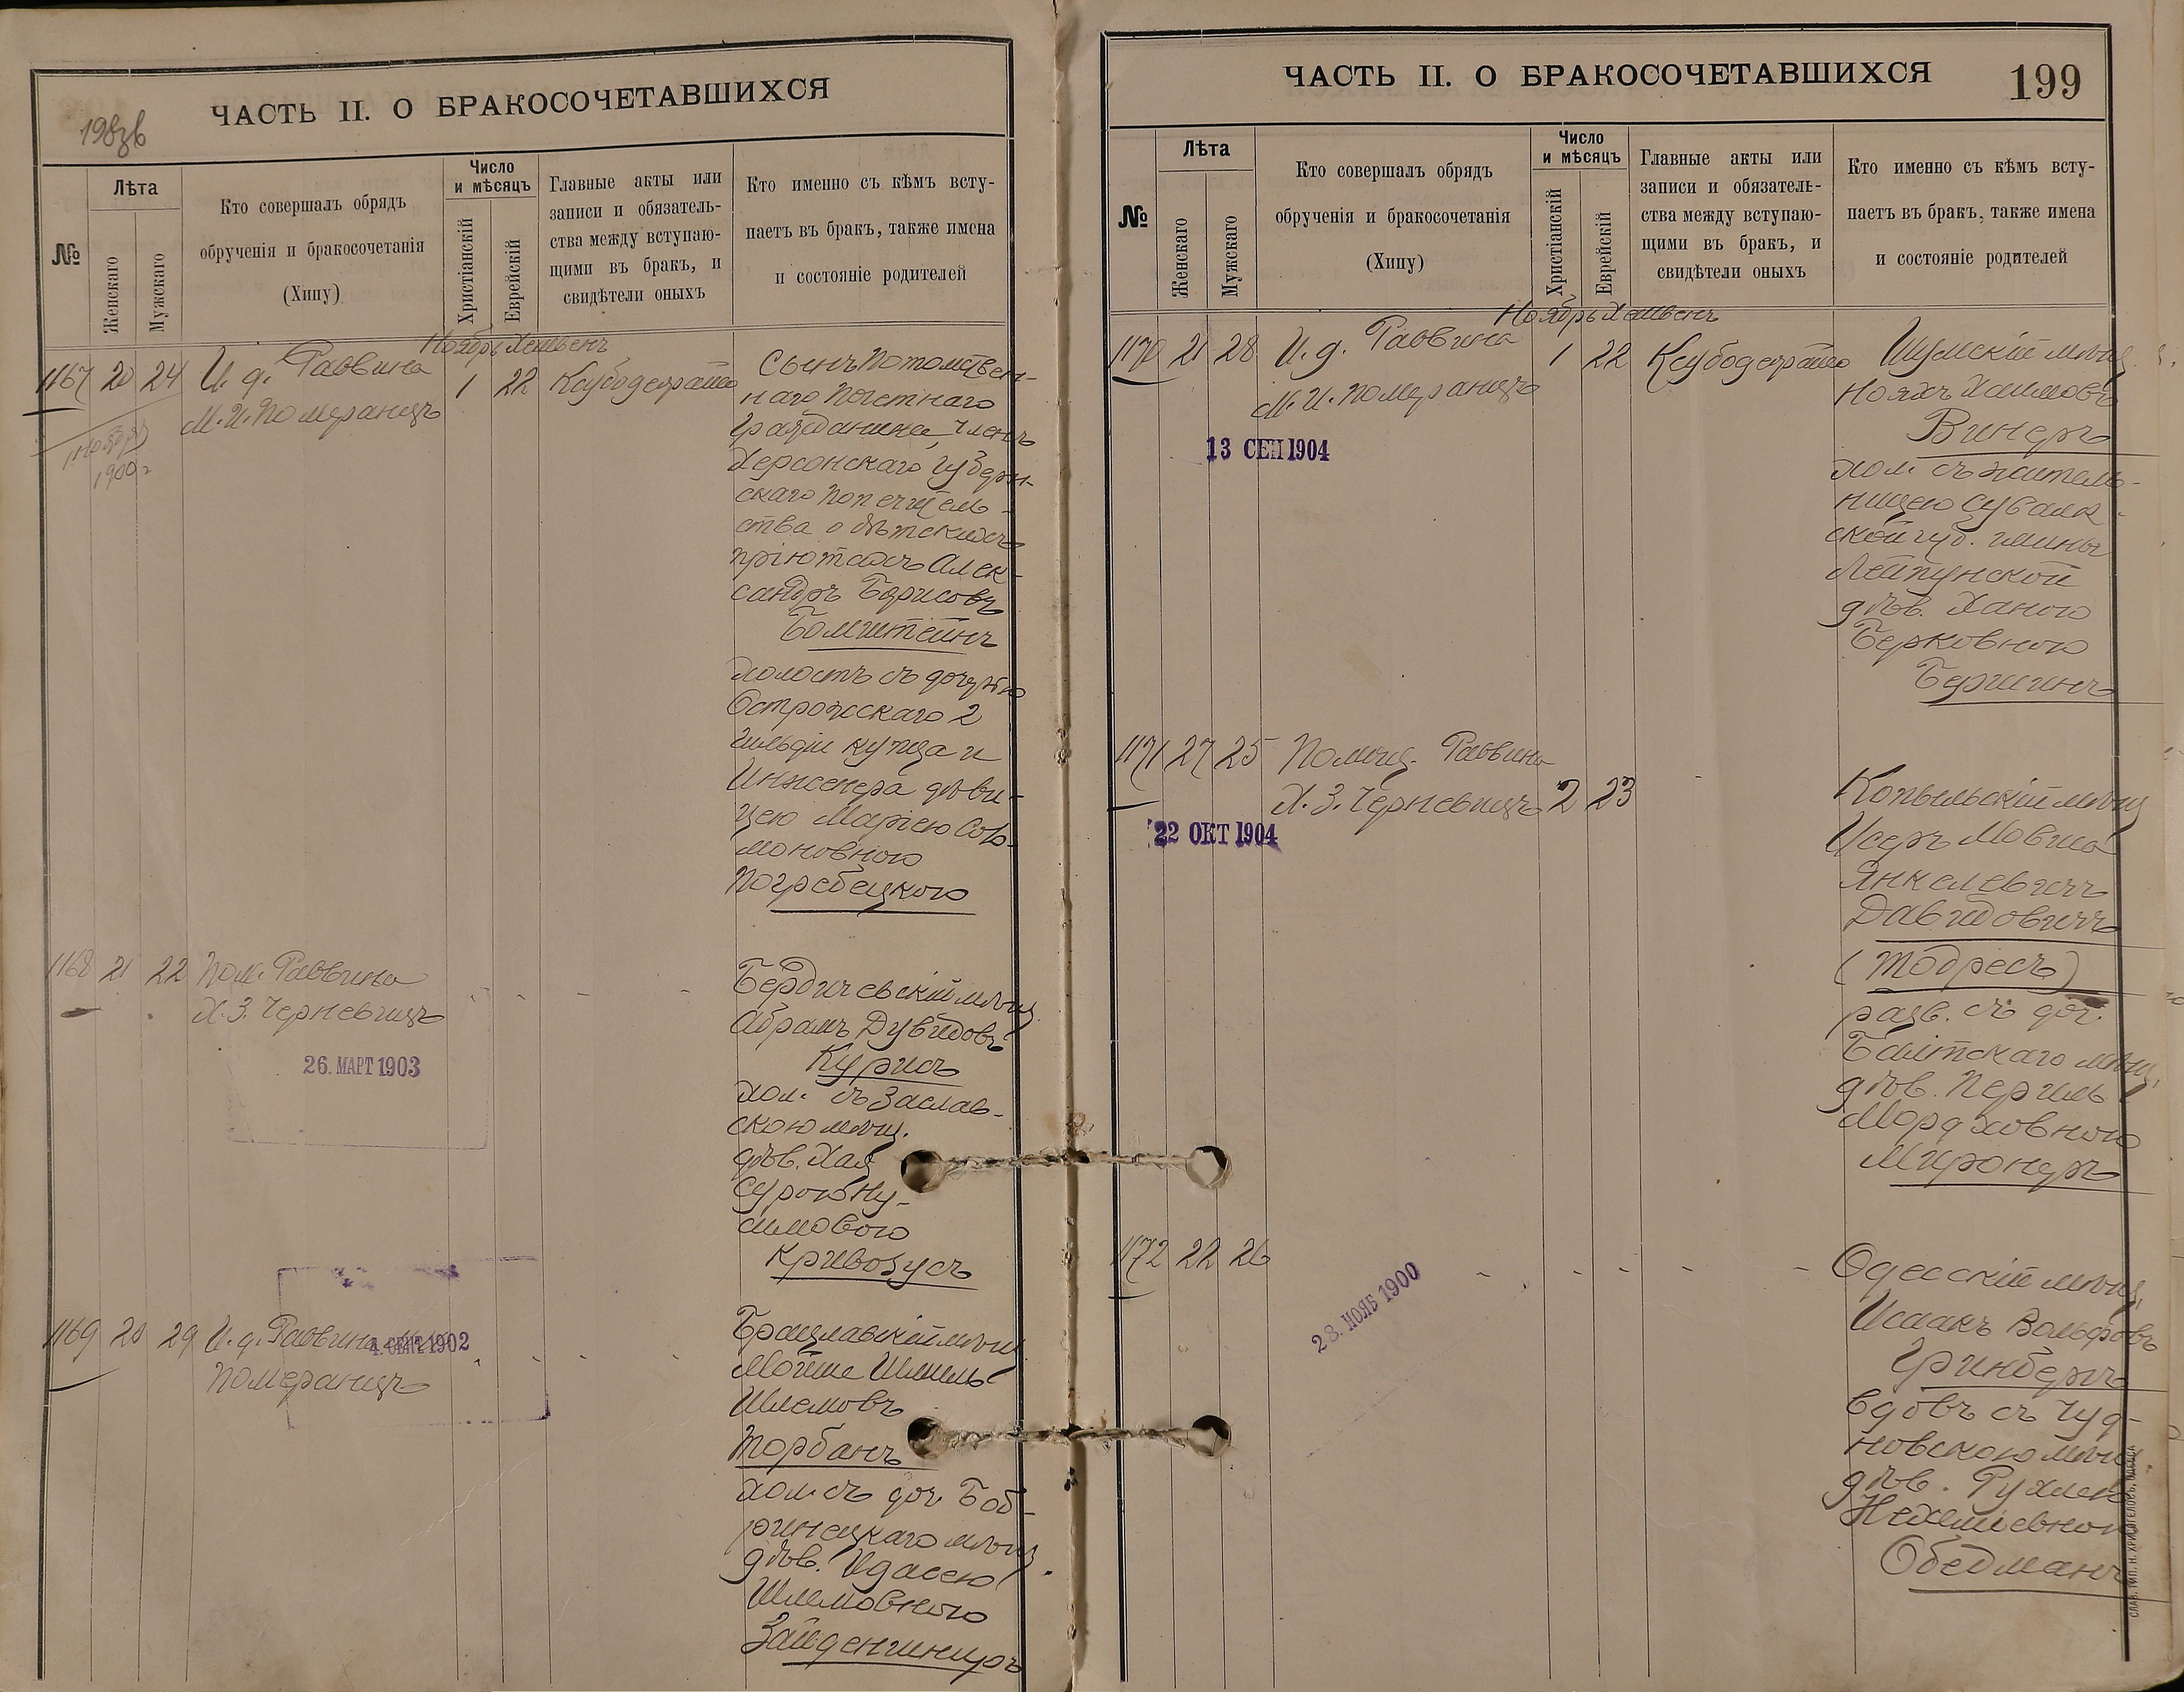 ЧАСТЬ II. О БРАКОСОЧЕТАВШИХСЯ
198зв
№
Лѣта
Женскаго
Мужскаго
Кто совершалъ обрядъ
обрученія и бракосочетанія
(Хипу)
Число
и мѣсяцъ
Христіанскій
Еврейскій
Главные акты или
записи и обязатель-
ства между вступаю-
щими въ бракъ, и
свидѣтели оныхъ
Кто именно съ кѣмъ всту-
паетъ въ бракъ, также имена
и состояніе родителей
Ноябрь Хешвенъ
1167 20 24 И. д. Раввина
М. И. Померанецъ
1 22
1 ноября
1900 г
Сынъ Потомствен-
наго Почетнаго
Гражданина членъ
Херсонскаго Губерн-
скаго Попечитель-
ства о дѣтскихъ
пріютахъ Алек-
сандръ Борисовъ
Бомштейнъ
холостъ съ дочерью
Острожскаго 2
гильдіи купца и
Инженера дѣви-
цею Маріею Соло-
моновною
Погребецкою
1168 21 22 Пом. Раввина
Х. З. Черневицъ
26. МАРТ 1903
Бердичевскій мѣщ.
Абрамъ Дувидовъ
Курисъ
хол. съ Заслав-
скою мѣщ.
дѣв. Хая
Сурою Ну-
химовою
Кривозусъ
1169 20 29 И. д. Раввина М. И.
Померанецъ
4. СЕНТ 1902
Брацлавскій мѣщ.
Мойше Шмиль
Шлемовъ
Торбанъ
хол. съ доч. Боб-
ринецкаго мѣщ.
дѣв. Идасею
Шлемовною
Зайденшниръ
ЧАСТЬ II. О БРАКОСОЧЕТАВШИХСЯ
199
№
Лѣта
Женскаго
Мужскаго
Кто совершалъ обрядъ
обрученія и бракосочетанія
(Хипу)
Число
и мѣсяцъ
Христіанскій
Еврейскій
Главные акты или
записи и обязатель-
ства между вступаю-
щими въ бракъ, и
свидѣтели оныхъ
Кто именно съ кѣмъ всту-
паетъ въ бракъ, также имена
и состояніе родителей
Ноябрь Хешвенъ
1170 21 28 И. д. Раввина
М. И. Померанецъ
1 22
13 СЕН 1904
Шумскій мѣщ.
Нояхъ Хаимовъ
Винеръ
хол. съ житель-
ницею Сувалк-
ской губ. гмины
Лейпунской
дѣв. Ханою
Берковною
Бершинъ
1171 27 25 Помощ. Раввина
Х. З. Черневицъ 2 23
22 ОКТ 1904
Копыльскій мѣщ
Исеръ Мовша
Янкелевичъ
Давидовичъ
(Тодресъ)
разв. съ доч.
Балтскаго мѣщ.
дѣв. Перль
Мордховною
Миронеръ
1172 22 26
28. НОЯБ 1900
Одесскій мѣщ.
Исаакъ Вольфовъ
Гринбергъ
вдовъ съ Чуд-
новскою мѣщ.
дѣв. Рухлею
Нехемьевною
Обедманъ
СЛАВ. ТИП. Н. ХРИСОГЕЛОСЪ, ОДЕССА